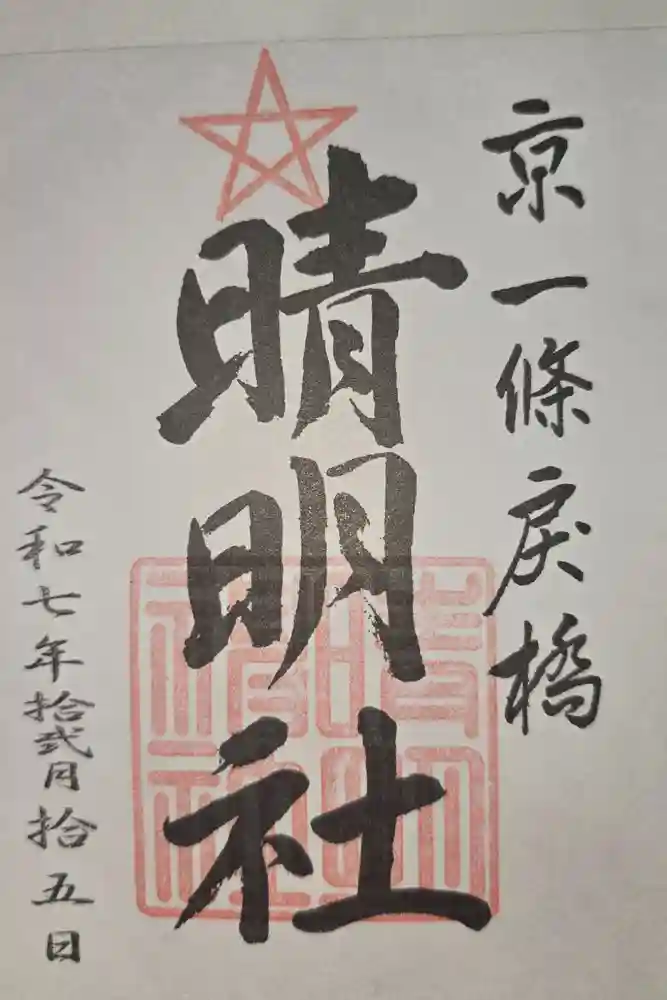 京一條戻橋
晴明社
令和七年拾弐月拾五日
晴明
神社